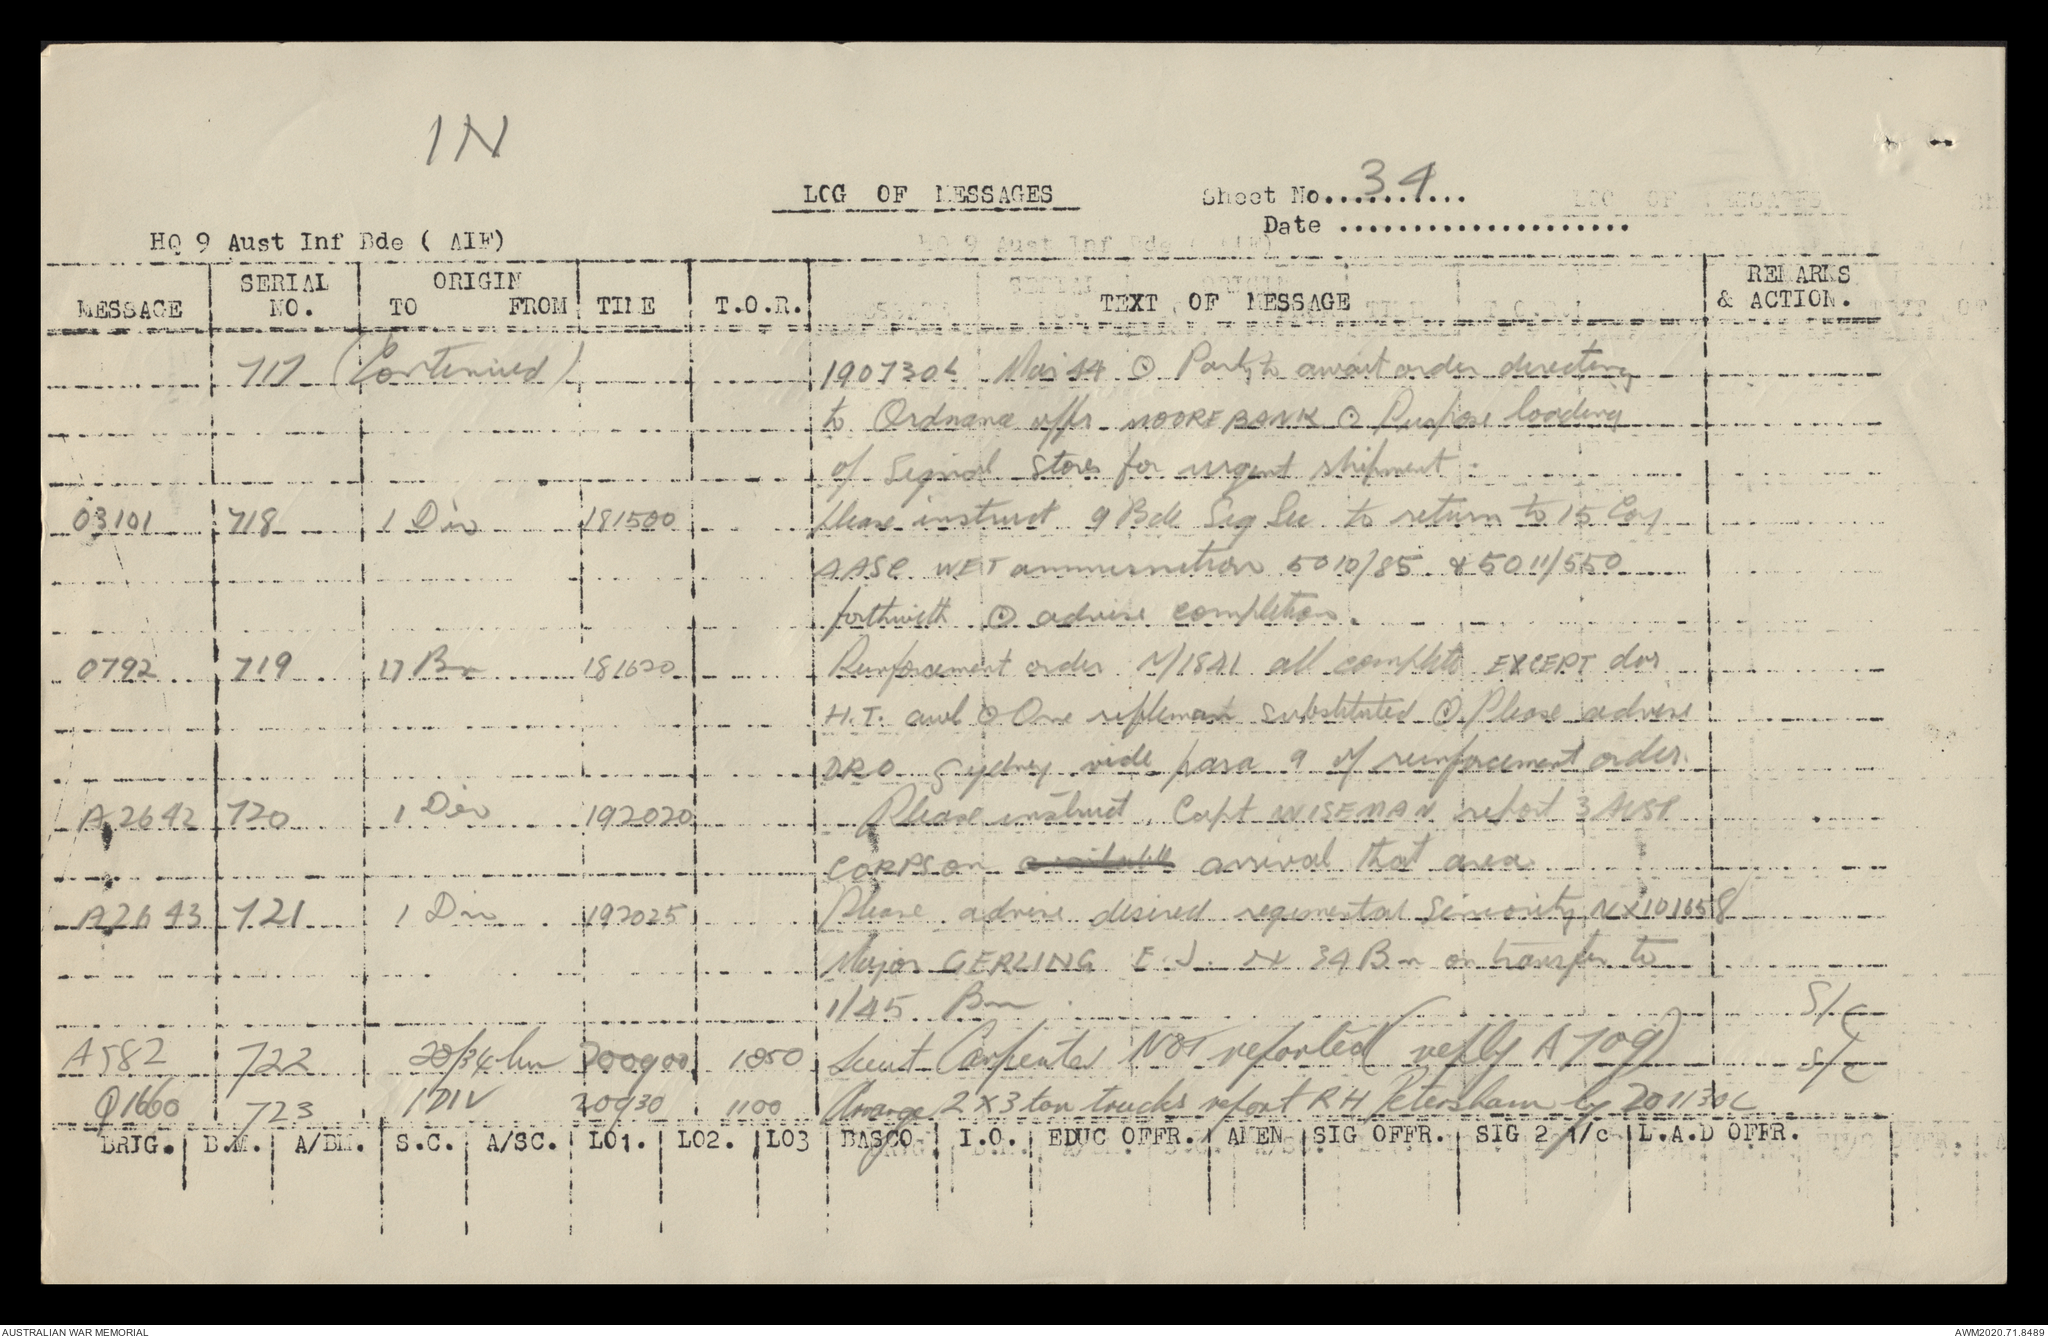 IN
LOG OF MESSAGES
Sheet No. 34
Date ....................
HQ 9 Aust Inf Bde ( AIF)
MESSAGE SERIAL NO. ORIGIN TO FROM TIME T.O.R. TEXT OF MESSAGE REMARKS & ACTION.
717 (Continued) 190730L Mar 44 ⊙ Party to await order directing
to Ordnance offr MOOREBANK ⊙ Purpose loading
of Signal Stores for urgent shipment.
03101 718 1 Div 181500 Please instruct 9 Bde Sig Sec to return to 15 Coy
AASC WET ammunition 5010/85 & 5011/550
forthwith ⊙ advise completion.
0792 719 17 Bn 181620 Reinforcement order N/1841 all complete EXCEPT dvr
H.T. awl ⊙ One rifleman substituted ⊙ Please advise
DRO Sydney vide para 9 of reinforcement order.
A2642 720 1 Div 192020 Please instruct Capt WISEMAN report 3 AUST
CORPS on arrival that area
A2643 721 1 Div 192025 Please advise desired regimental seniority NX101658
Major GERLING E.J. 34 Bn on transfer to
1/45 Bn. S/C
A582 722 20/34 bn 200900 1050 Lieut Carpenter NOT reported (reply A709) S/C
Q1660 723 1 DIV 200930 1100 Arrange 2 X 3 ton trucks report RH Petersham by 201130L
BRIG. B.M. A/BM. S.C. A/SC. LO1. LO2. LO3 BASCO I.O. EDUC OFFR. AMEN SIG OFFR. SIG 2 i/c L.A.D OFFR.
AUSTRALIAN WAR MEMORIAL
AWM2020.71.8489